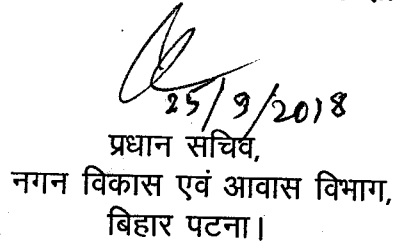 25/9/2018
प्रधान सचिव,
नगन विकास एवं आवास विभाग,
बिहार पटना।